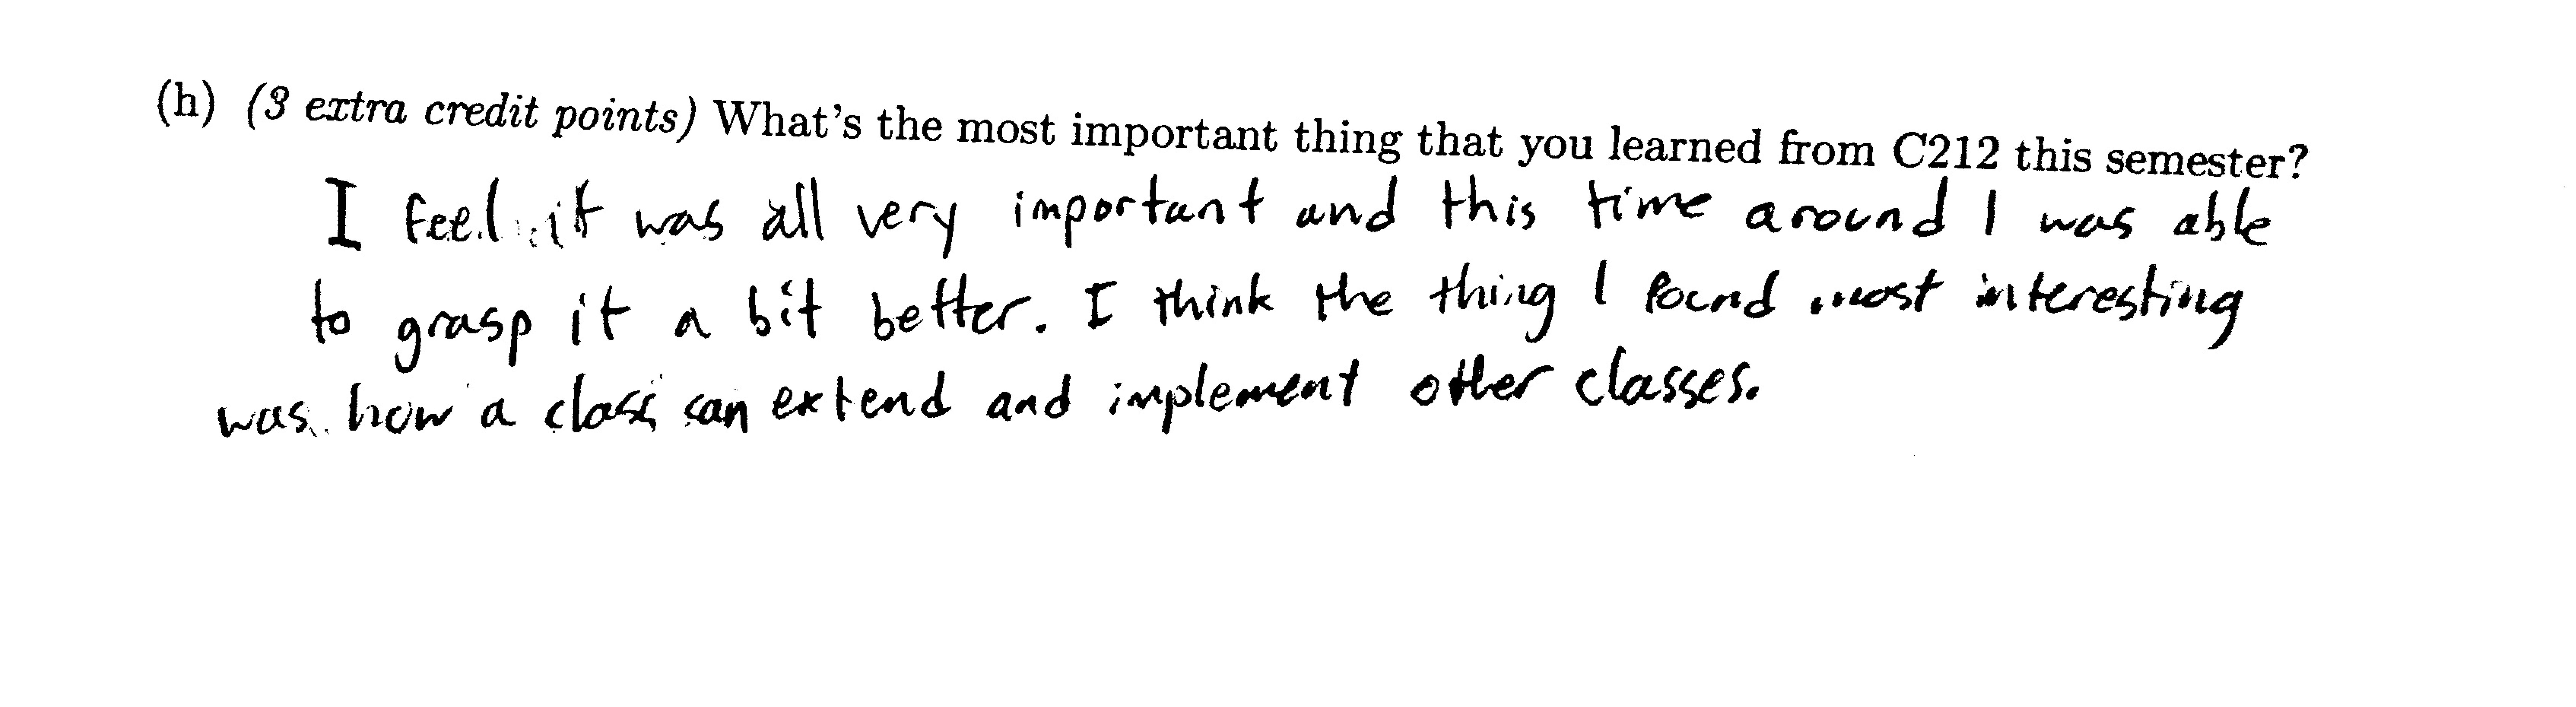 (h) (3 extra credit points) What's the most important thing that you learned from C212 this semester?
I feel it was all very important and this time around I was able
to grasp it a bit better. I think the thing I found most interesting
was how a class can extend and implement other classes.